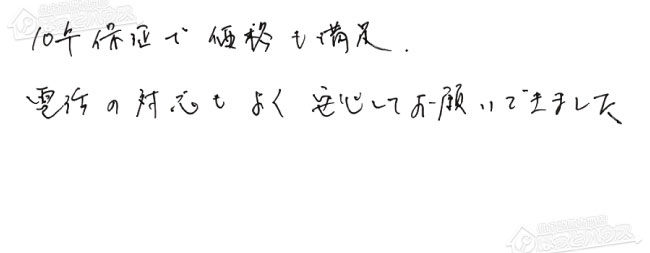 10年保証で価格も満足.
電話の対応もよく安心してお願いできました